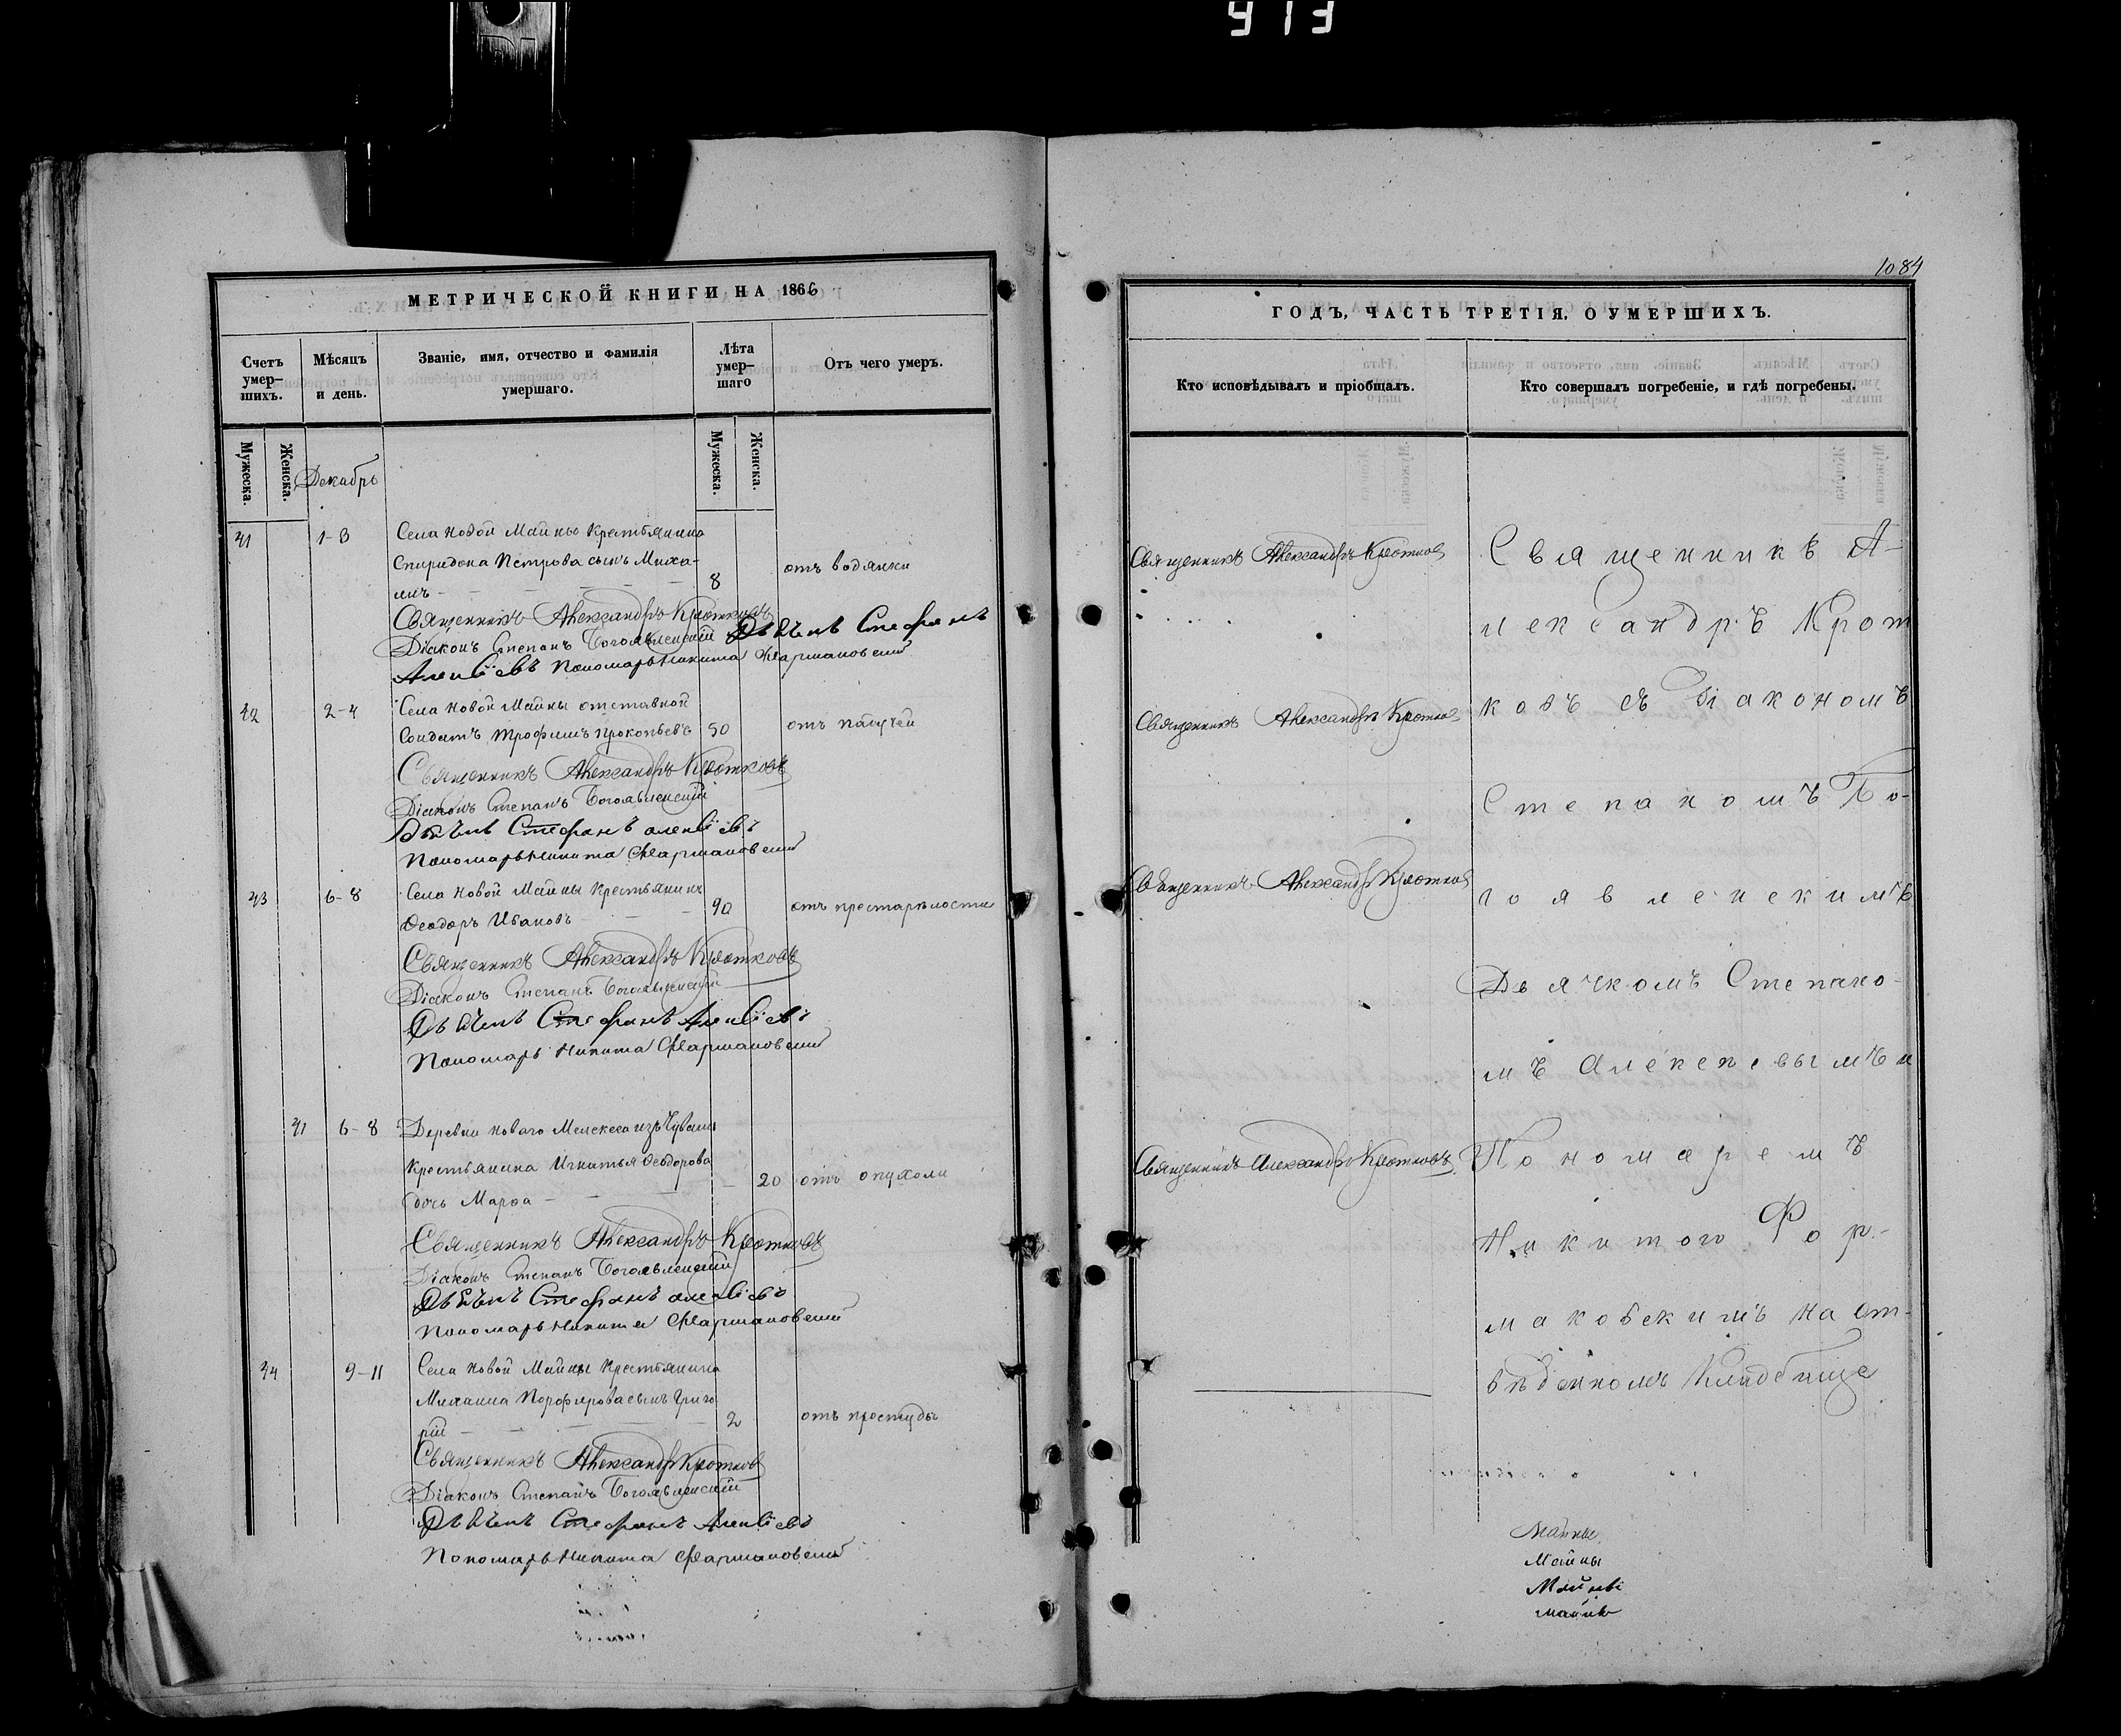 913
1084
МЕТРИЧЕСКОЙ КНИГИ НА 1866
Счетъ умер-шихъ.
Мѣсяцъ и день.
Званіе, имя, отчество и фамилія умершаго.
Лѣта умер-шаго
Отъ чего умеръ.
Мужеска.
Женска.
Декабрь
Мужеска.
Женска.
41 1-3 Села Новой Майны Крестьянина
Спиридона Петрова сынъ Миха-
илъ 8 отъ водянки
Священникъ Александръ Кротковъ
Діаконъ Степанъ Богоявленскій Дьячекъ Стефанъ
Алексіевъ Пономарь Никита Фармаковскій
42 2-4 Села Новой Майны отставной
Солдатъ Трофимъ Прокопьевъ 50 отъ падучей
Священникъ Александръ Кротковъ
Діаконъ Степанъ Богоявленскій
Дьячекъ Стефанъ Алексіевъ
Пономарь Никита Фармаковскій
43 6-8 Села Новой Майны Крестьянинъ
Ѳеодоръ Ивановъ 90 отъ престарѣлости
Священникъ Александръ Кротковъ
Діаконъ Степанъ Богоявленскій
Дьячекъ Стефанъ Алексіевъ
Пономарь Никита Фармаковскій
41 6-8 Деревни Новаго Мелекеса изъ Чувашъ
Крестьянина Игнатья Ѳеодорова
дочь Марѳа 20 отъ опухоли
Священникъ Александръ Кротковъ
Діаконъ Степанъ Богоявленскій
Дьячекъ Стефанъ Алексіевъ
Пономарь Никита Фармаковскій
44 9-11 Села Новой Майны Крестьянина
Михаила Порфирова сынъ Григо
рій 2 отъ простуды
Священникъ Александръ Кротковъ
Діаконъ Степанъ Богоявленскій
Дьячекъ Стефанъ Алексіевъ
Пономарь Никита Фармаковскій
ГОДЪ, ЧАСТЬ ТРЕТІЯ, О УМЕРШИХЪ.
Кто исповѣдывалъ и пріобщалъ.
Кто совершалъ погребеніе, и гдѣ погребены.
Священникъ Александръ Кротковъ
Священникъ Александръ Кротковъ
Священникъ Александръ Кротковъ
Священникъ Александръ Кротковъ
Священникъ А-
лександръ Крот
ковъ съ Діакономъ
Степаномъ Бо-
гоявленскимъ
Дьячкомъ Степано-
мъ Алексѣевымъ и
Пономаремъ
Никитою Фар-
маковскимъ на от-
вѣденномъ Кладбище
Майны
Майны
Майны
Майны